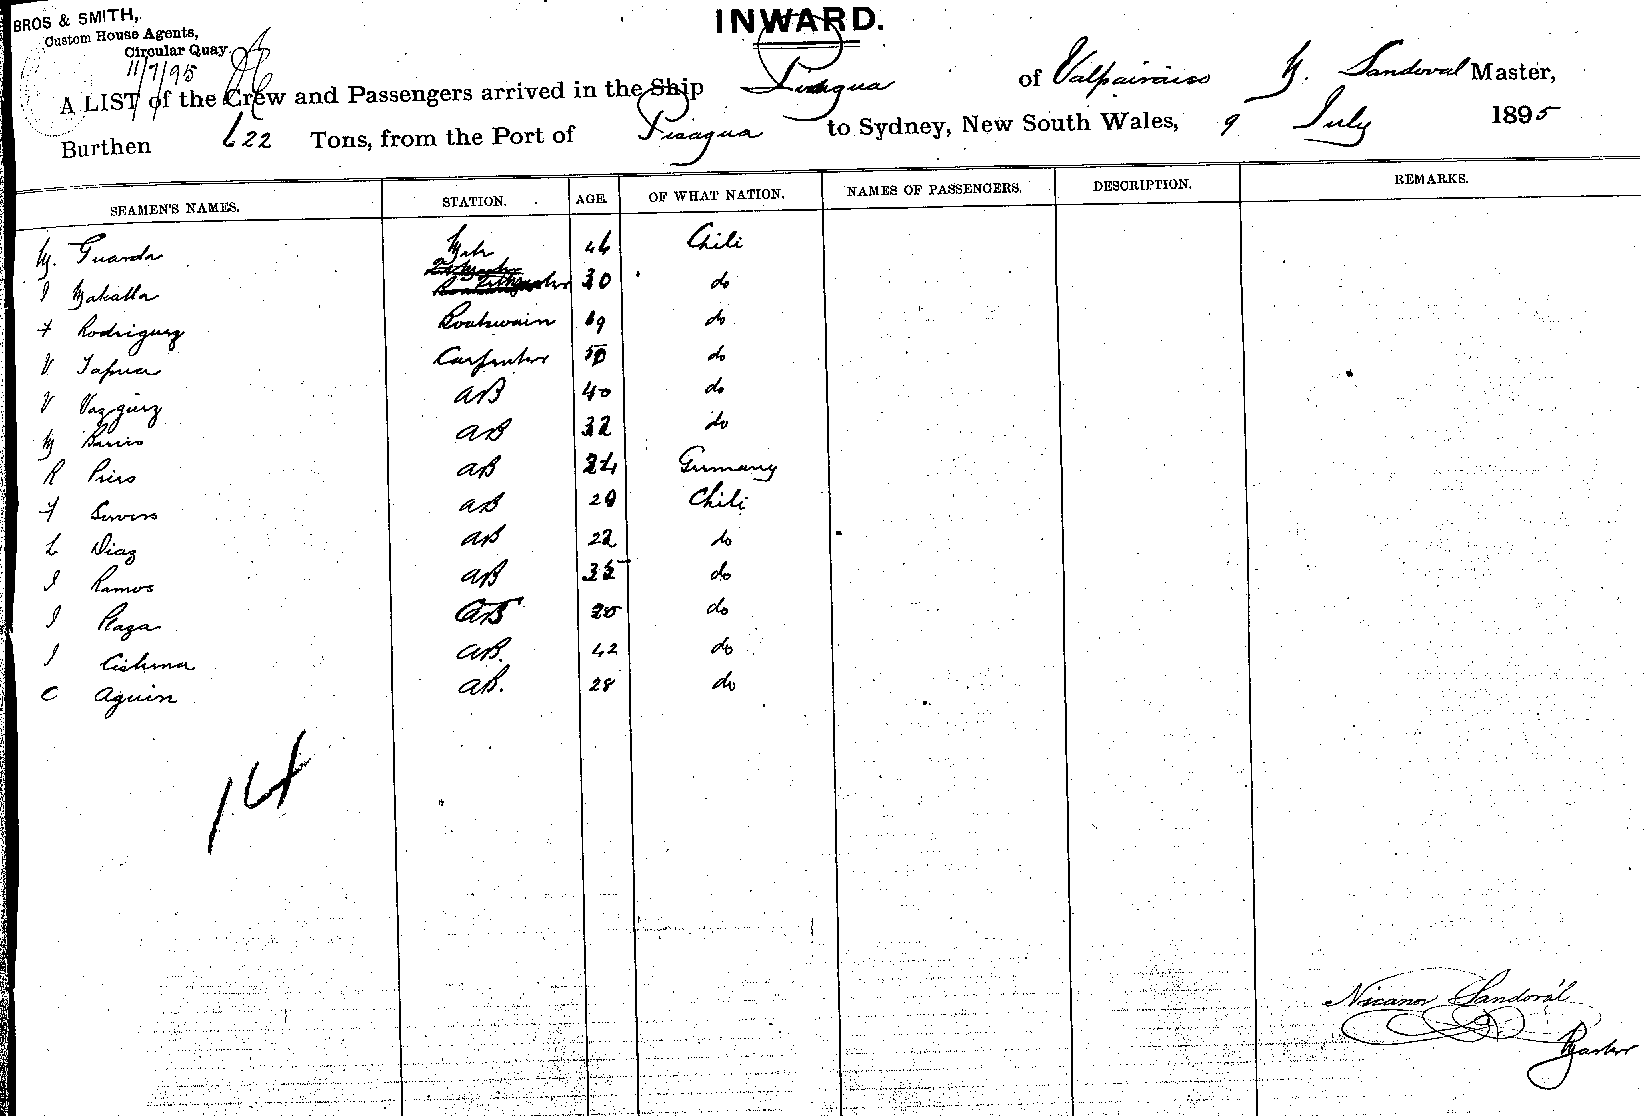 BROS & SMITH,
Custom House Agents,
Circular Quay
11/7/95
INWARD.
A LIST of the Crew and Passengers arrived in the Ship of Valparaiso Sandoval Master,
Burthen 622 Tons, from the Port of Pisagua to Sydney, New South Wales, 9 July 1895
SEAMEN'S NAMES. STATION. AGE. OF WHAT NATION. NAMES OF PASSENGERS. DESCRIPTION. REMARKS.
M. Guarda Mate 46 Chili
30 do
F Rodriguez Boatswain do
V Tapia Carpenter 50 do
V Vazquez AB 40 do
M AB 32 do
R AB 24 Germany
F AB 29 Chili
L Diaz AB 22 do
J Ramos AB 35 do
J Plaza AB 20 do
J AB. 42 do
C AB. 28 do
14
Nicanor Sandoval
Master